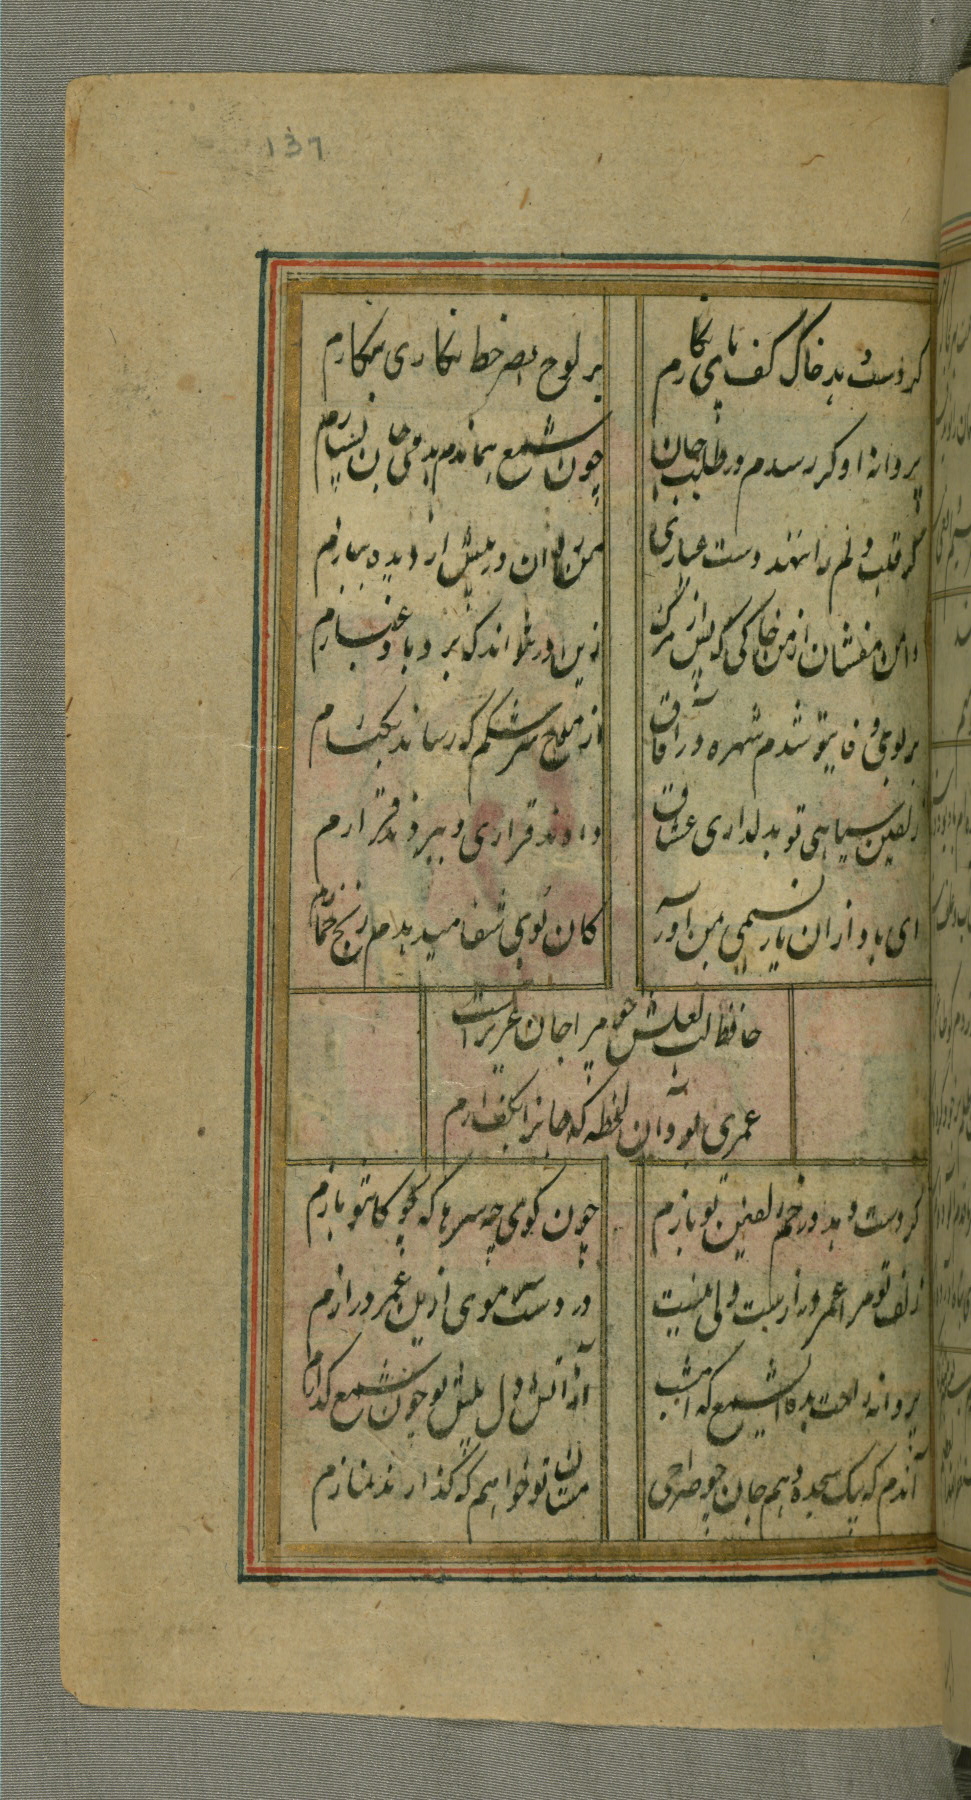 137
کر دست دهد خاک کف پای نکارم
بر لوح بصر خط نکاری بنکارم
پروانه او کر رسدم در طلب جان
چون شمع هماندم بدمی جان بسپارم
کر قلب دلم را ننهد دست عیاری
من نقد روان در پیش از دیده ببارم
دامن مفشان از من خاکی که پس از مرک
زین در نتواند که برد باد غبارم
بر بوی
شدم
از موج سرشکم که رساند بکنارم
زلفین سیاهی تو بدلداری عشاق
دادند قراری و ببردند قرارم
ای باد از ان یار نسیمی بمن آور
کان بوی شفا میدهد از رنج خمارم
حافظ لب لعلش چو مرا جان عزیز است
عمری بود آن لحظه که جانرا بکف آرم
کر دست دهد در خم زلفین تو بازم
چون کوی چه سرها که بچوکان تو بازم
زلف تو مرا عمر درازست ولی نیست
در دست سر موی ازین عمر درازم
پروانه راحت بده ای شمع که امشب
از آتش دل پیش تو چون شمع کدازم
آندم که بیک سجده دهم جان چو صراحی
مستان تو خواهم که گذارند نمازم